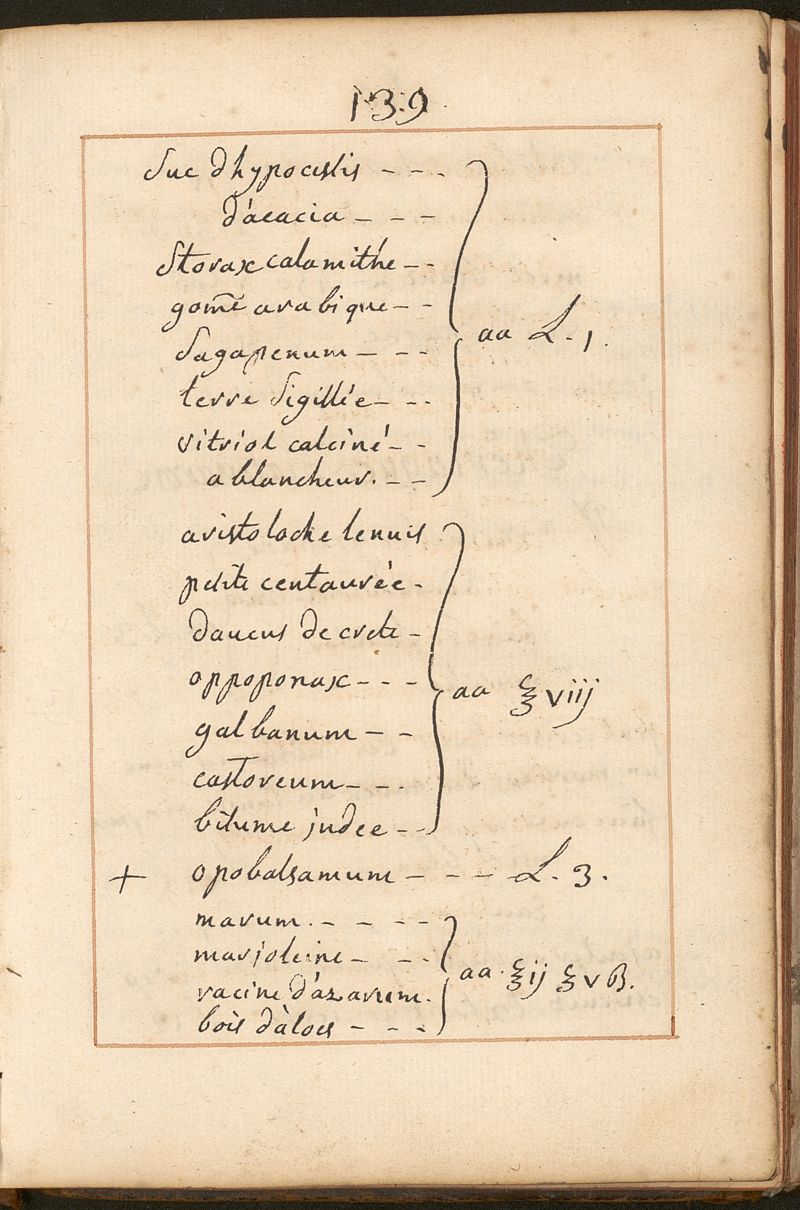 139
Suc dhypocistis - - -
d'acacia - - -
Storax calamithe - -
gom̃e arabique - -
Sagapenum - - -
aa L. 1.
terre Sigillée - - -
vitriol calciné - -
a blancheur. - -
aristoloche tenuis
petite centaurée -
daucus de crete -
oppoponax - - -
aa ℥ viij
galbanum - -
castoreum - - -
bitume judee - -
+ opobalsamum - - - L. 3.
marum. - - - -
marjoleine - - -
aa. ℥ij ʒ v ß.
racine d'azarum.
bois d'aloes - - - -